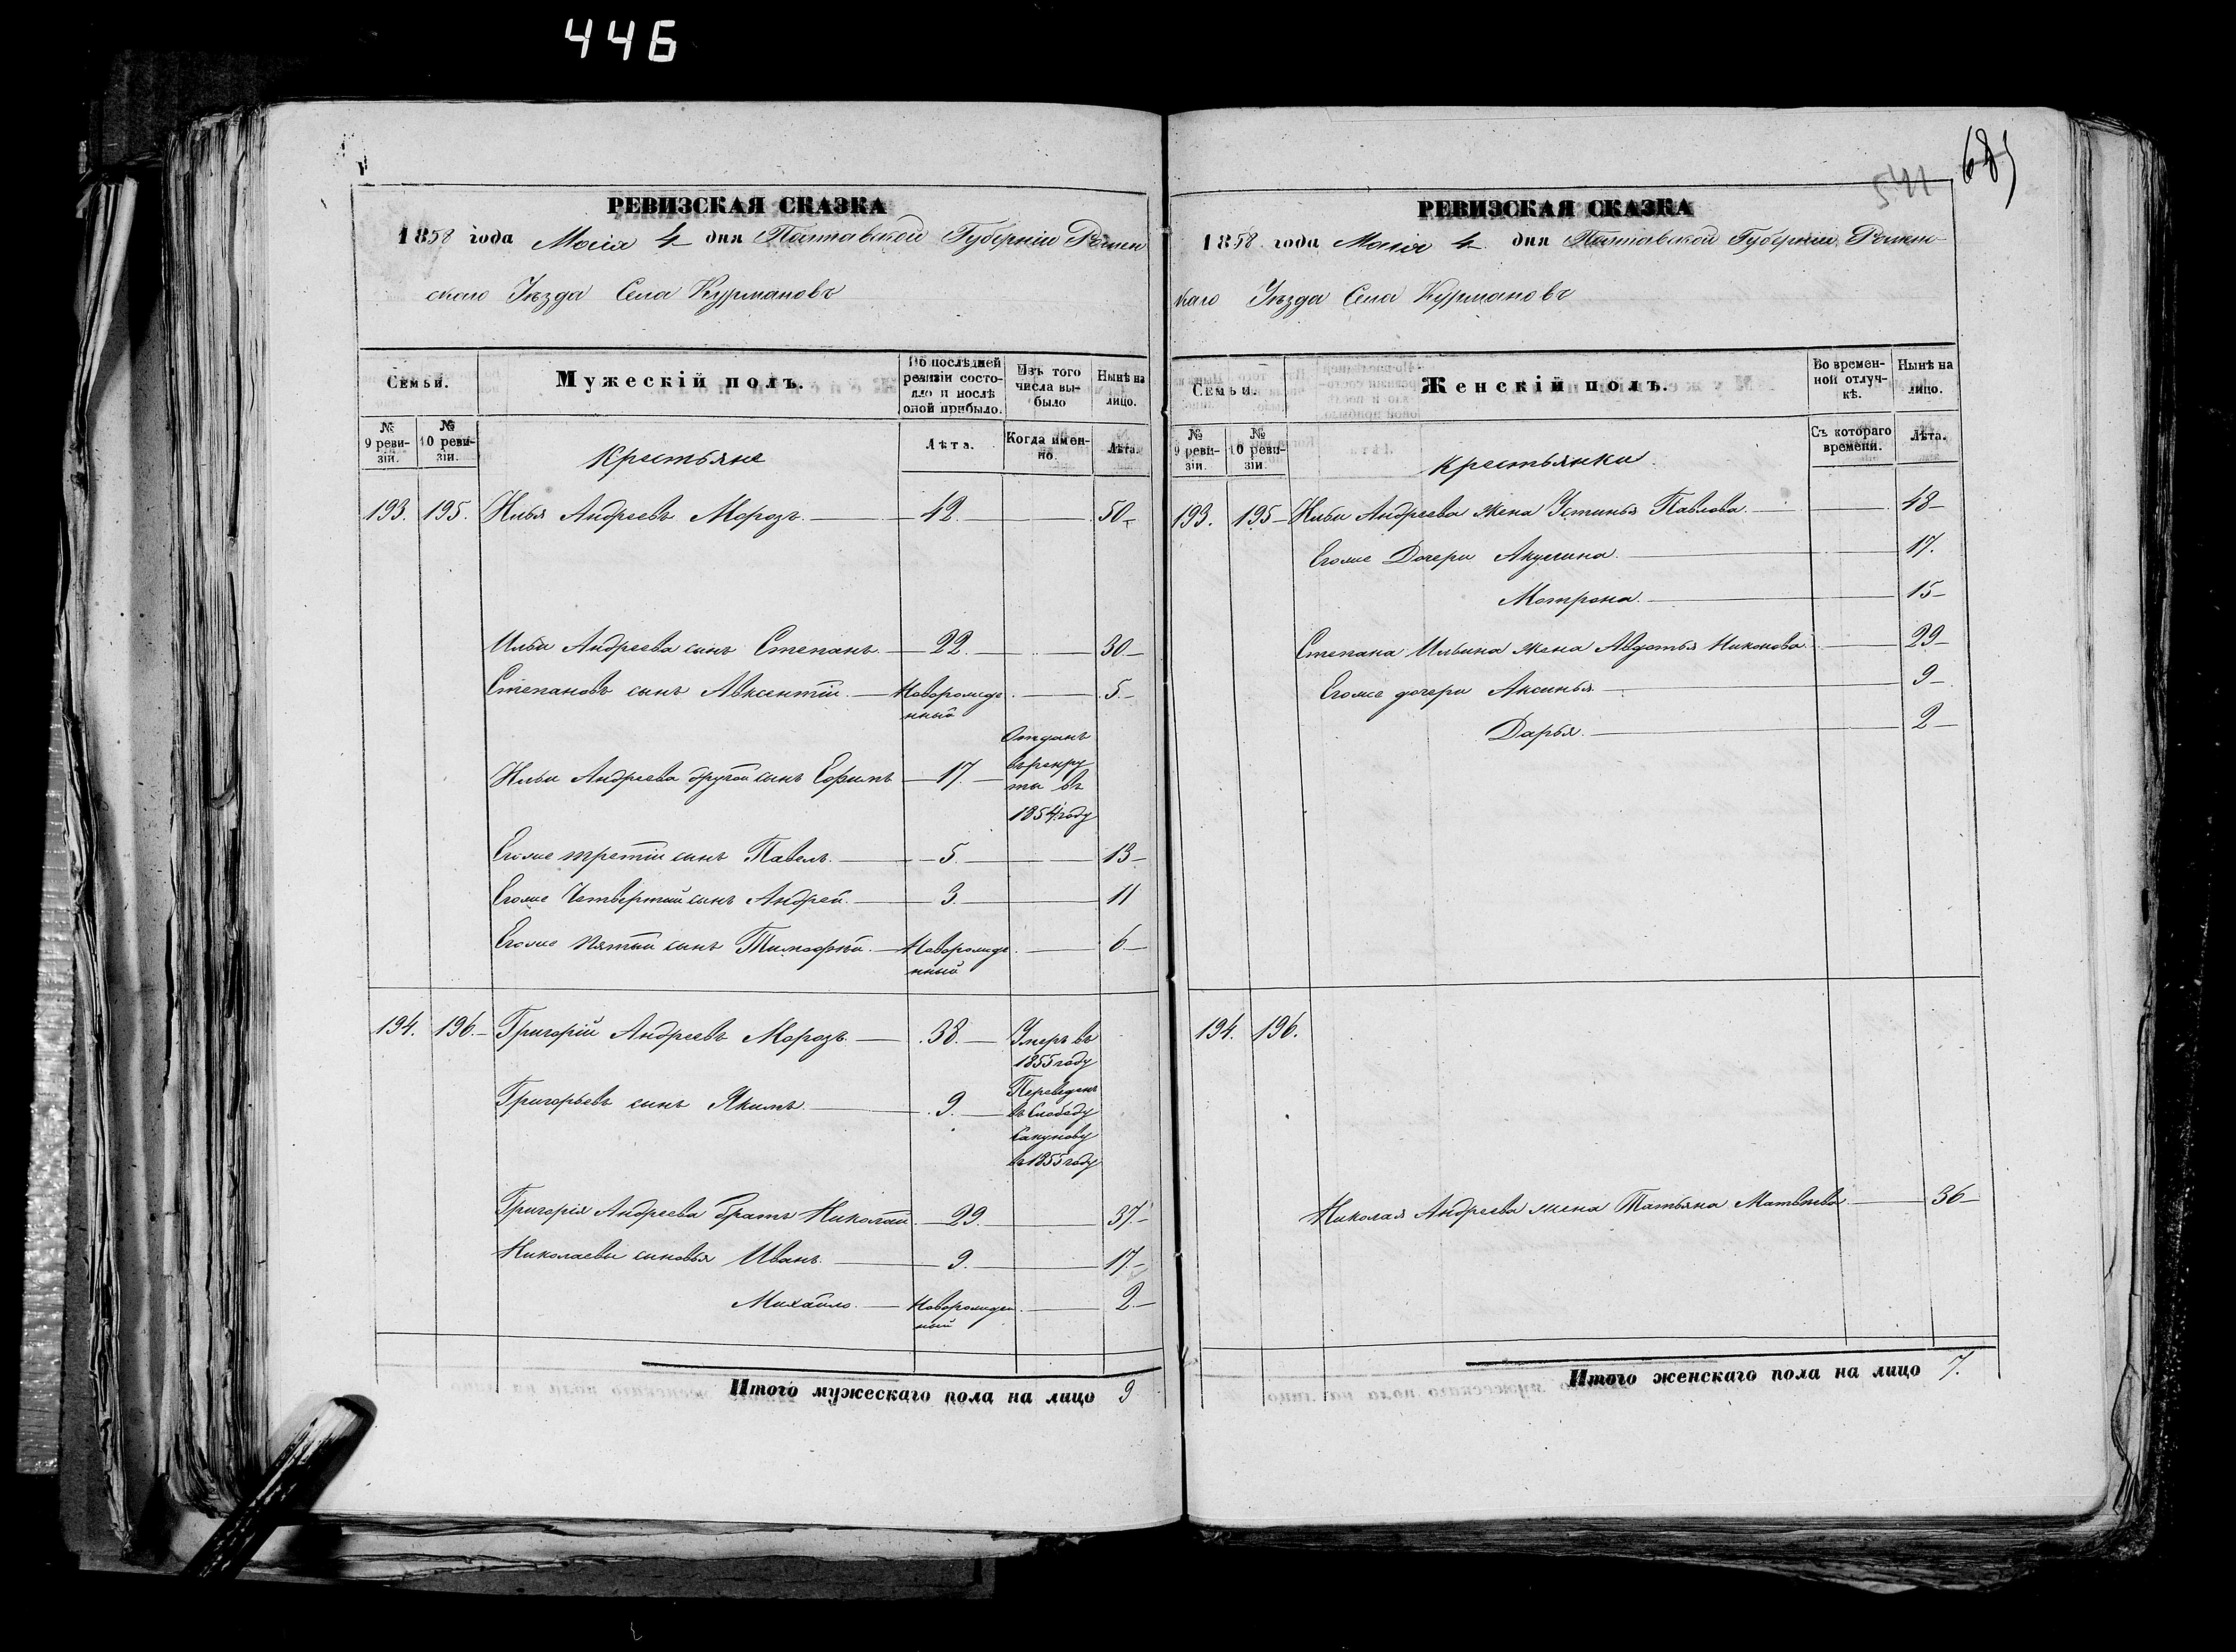 446
РЕВИЗСКАЯ СКАЗКА
1858 года Маія 4 дня Полтавской Губерніи Ромен
скаго Уѣзда Села Курмановъ
Семьи.
Мужескій полъ.
По послѣдней ревизіи состояло и послѣ оной прибыло.
Изъ того числа выбыло
Нынѣ на лицо.
№ 9 ревизіи.
№ 10 ревизіи.
Крестьяне
Лѣта.
Когда именно.
Лѣта.
193. 195. Илья Андреевъ Морозъ. — 42. — 50.
Ильи Андреева сынъ Степанъ. — 22. — 30.
Степановъ сынъ Авксентій. — Новорожде — 5.
нный
Отданъ
Ильи Андреева другой сынъ Ефимъ — 17. — въ рекру
ты въ
1854 году
Егоже третій сынъ Павелъ. — 5. — 13
Егоже Четвертый сынъ Андрей. — 3. — 11
Егоже пятый сынъ Тимофѣй. — Новорожде — 6
нный
194. 196. Григорій Андреевъ Морозъ. — 38. — Умеръ въ
1855 году
Григорьевъ сынъ Якимъ. — 9. — Переведенъ
въ Слободу
Сакунову
въ 1855 году
Григорія Андреева братъ Николай — 29. — 37.
Николаевы сыновья Иванъ. — 9. — 17.
Михайло. — Новорожден — 2.
ный
Итого мужескаго пола на лицо 9
541
689
РЕВИЗСКАЯ СКАЗКА
1858 года Маія 4 дня Полтавской Губерніи Ромен-
скаго Уѣзда Села Курмановъ
Семьи.
Женскій полъ.
Во временной отлучкѣ.
Нынѣ на лицо.
№ 9 ревизіи.
№ 10 ревизіи.
Крестьянки.
Съ котораго времени.
Лѣта.
193. 195 Ильи Андреева жена Устинья Павлова. — 48
Егоже Дочери Акулина. — 17.
Мотрона. — 15
Степана Ильина жена Авдотья Никонова — 29
Егоже дочери Аксинья. — 9
Дарья. — 2
194. 196.
Николая Андреева жена Татьяна Матвѣева — 36
Итого женскаго пола на лицо 7.